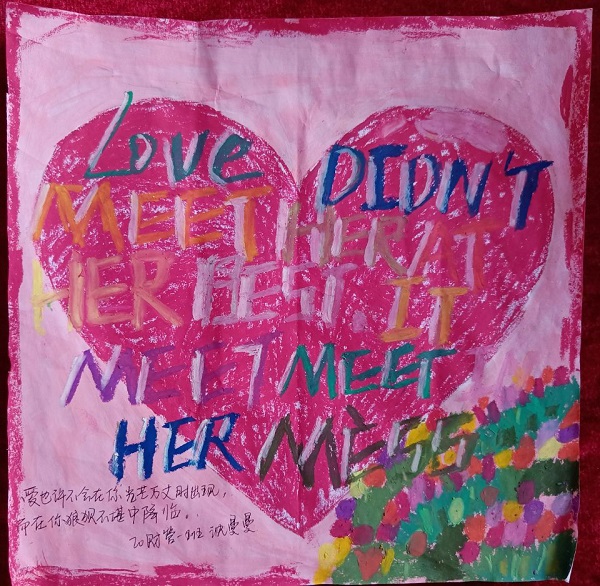 Love DIDN'T
MEET HER AT
HER BEST. IT
MEET MEET IN
HER MESS
爱也许不会在你光芒万丈时出现，
而在你狼狈不堪中降临。
20财管一班 沈曼曼